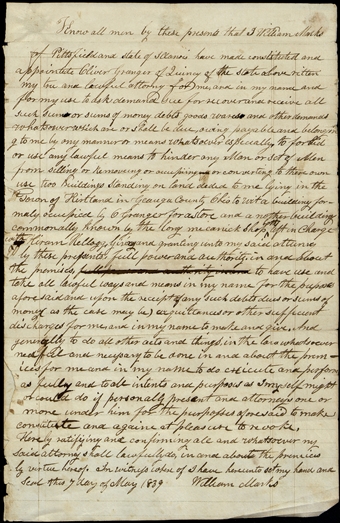 Know all men by these presents that I William Marks
of Pittsfield and state of Illinois have made constituted and
appointed Oliver Granger of Quincy of the state above ritten
my true and lawful attorney for me and in my name and
for my use to ask demand sue for recover and receive all
such sums or sums of money debts goods wares and other demands
whatsoever which are or shall be due, owing payable and belong
g to me by any manner or means whatsoever especially to forbid
or use any lawful means to hinder any Man or set of Men
from selling or removing or occupying or converting to there own
use two Buildings standing on land deded to me lying in the
Town of Kirtland in Geauga County Ohio to wit a building for
maly occupied by O Granger for a store and a nother building
commonly known by the Long mecanick Shop left in Charge
of Hiram Kellogg, giving and granting unto my said attorney
by these presents full power and authority in and about
the premises to have use and
take all lawful ways and means in my name for the purpose
afore said and upon the receipt of any such debts dues or sums of
money (as the case may be) acquittances or other sufficient
discharges for me and in my name to make and give. And
generally to do all other acts and things in the law whatsoever
needfull and necessary to be done in and about the prem-
ices for me and in my name to do execute and perform
as fully and to all intents and purposes as I myself might
or could do if personally present and attorneys one or
more under him for the purposses afore said to make
constitute and againe at pleasure to revoke.
Hereby ratifying and confirming all and whatsoever my
said attorney shall lawfully do, in and about the premices
by virtue hereof. In witness whereof I have hereunto set my hand and
Seal this 7 day of May 1839 William Marks